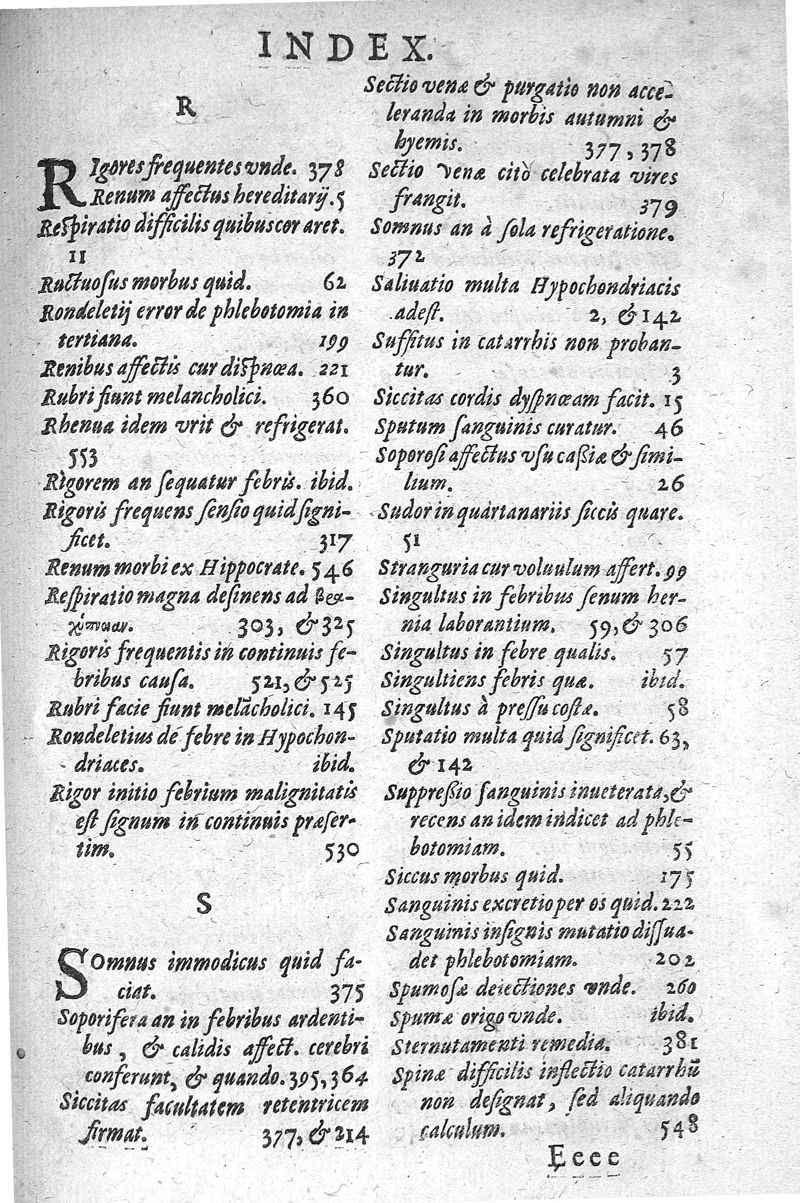 INDEX.
R
RIgores frequentes vnde. 378
Renum affectus hereditarij. 5
Respiratio difficilis quibuscor aret.
11
Ructuosus morbus quid. 62
Rondeletij error de phlebotomia in
tertiana. 199
Renibus affectis cur dispnœa. 221
Rubri fiunt melancholici. 360
Rhenua idem vrit & refrigerat.
553
Rigorem an sequatur febris. ibid.
Rigoris frequens sensio quid signi-
ficet. 317
Renum morbi ex Hippocrate. 546
Respiratio magna desinens ad βρα-
χύπνοιαν. 303, & 325
Rigoris frequentis in continuis fe-
bribus causa. 521, & 525
Rubri facie fiunt melãcholici. 145
Rondeletius de febre in Hypochon-
driaces. ibid.
Rigor initio febrium malignitatis
est signum in continuis præser-
tim. 530
S
SOmnus immodicus quid fa-
ciat. 375
Soporifera an in febribus ardenti-
bus, & calidis affect. cerebri
conferunt, & quando. 395, 364
Siccitas facultatem retentricem
firmat. 377, & 214
Sectio venæ & purgatio non acce-
leranda in morbis autumni &
hyemis. 377, 378
Sectio venæ citò celebrata vires
frangit. 379
Somnus an à sola refrigeratione.
372
Saliuatio multa Hypochondriacis
adest. 2, & 142
Suffitus in catarrhis non proban-
tur. 3
Siccitas cordis dyspnœam facit. 15
Sputum sanguinis curatur. 46
Soporosi affectus vsu cassiæ & simi-
lium. 26
Sudor in quartanariis siccis quare.
51
Stranguria cur voluulum affert. 99
Singultus in febribus senum her-
nia laborantium. 59, & 306
Singultus in febre qualis. 57
Singultiens febris quæ. ibid.
Singultus à pressu costæ. 58
Sputatio multa quid significet. 63,
& 142
Suppressio sanguinis inueterata, &
recens an idem indicet ad phle-
botomiam. 55
Siccus morbus quid. 175
Sanguinis excretio per os quid. 222
Sanguinis insignis mutatio dissua-
det phlebotomiam. 202
Spumosæ deiectiones vnde. 260
Spumæ origo vnde. ibid.
Sternutamenti remedia. 381
Spinæ difficilis inflectio catarrhũ
non designat, sed aliquando
calculum. 548
Eeee